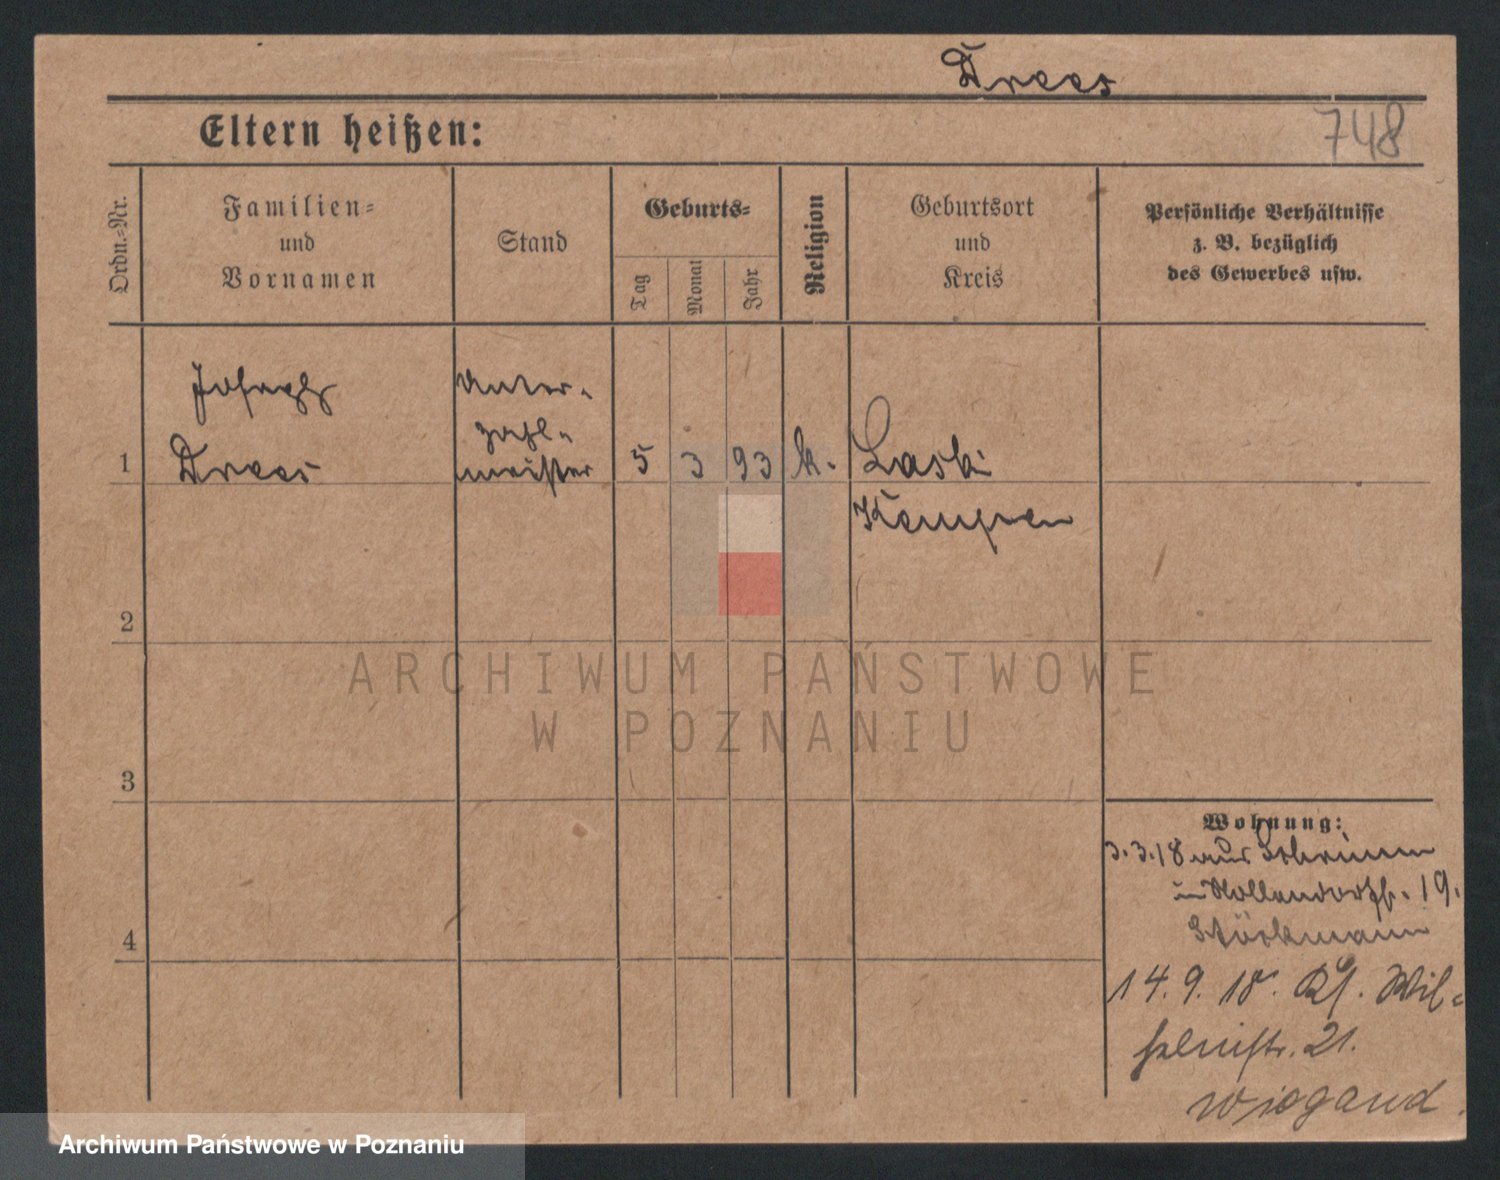 Drees
748
Eltern heißen:
Ordn.-Nr.
Familien-
und
Vornamen
Stand
Geburts-
Tag
Monat
Jahr
Religion
Geburtsort
und
Kreis
Persönliche Verhältnisse
z. B. bezüglich
des Gewerbes usw.
Joseph
Drees
Unter-
zahl-
meister
1
5
3
93
k.
Laski
Kempen
2
3
4
ARCHIWUM PAŃSTWOWE
W POZNANIU
Wohnung:
3.3.18 aus Schrimm
in Nollendorfstr. 19.
Störkmann
14.9.18. Kl. Wil-
helmstr. 21.
Wiegand.
Archiwum Państwowe w Poznaniu